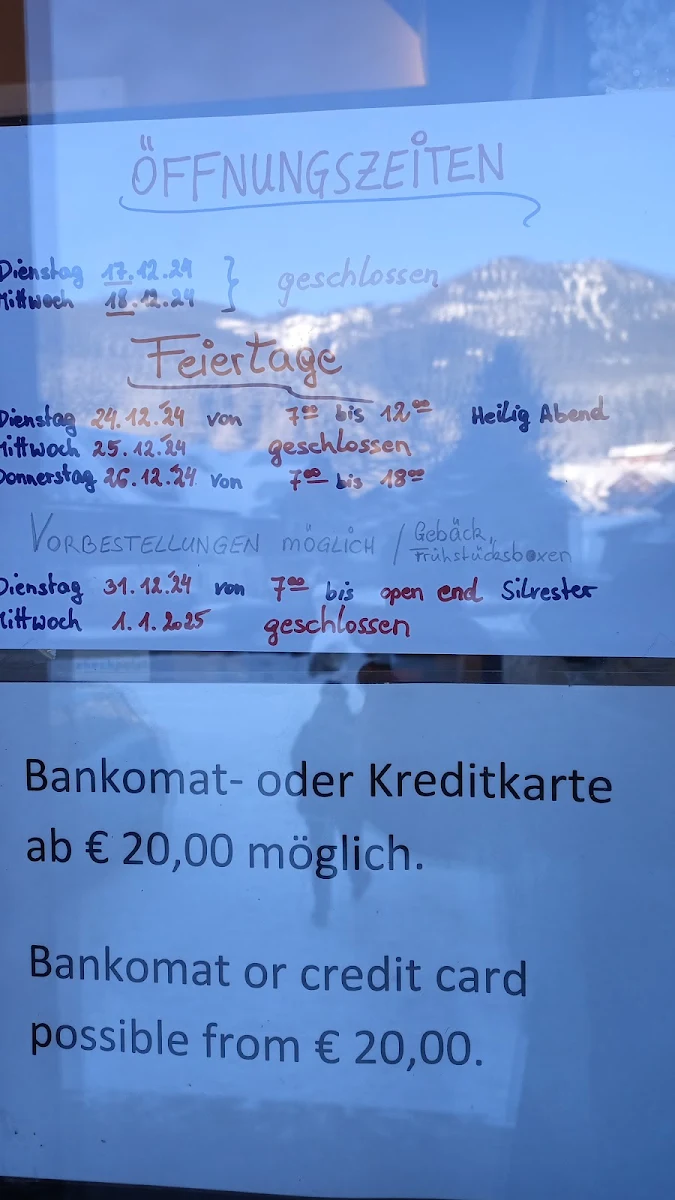 ÖFFNUNGSZEITEN
Dienstag 17.12.24 } geschlossen
Mittwoch 18.12.24
Feiertage
Dienstag 24.12.24 von 7⁰⁰ bis 12⁰⁰ Heilig Abend
Mittwoch 25.12.24 geschlossen
Donnerstag 26.12.24 von 7⁰⁰ bis 18⁰⁰
VORBESTELLUNGEN MÖGLICH / Gebäck,
Frühstücksboxen
Dienstag 31.12.24 von 7⁰⁰ bis open end Silvester
Mittwoch 1.1.2025 geschlossen
Bankomat- oder Kreditkarte
ab € 20,00 möglich.
Bankomat or credit card
possible from € 20,00.